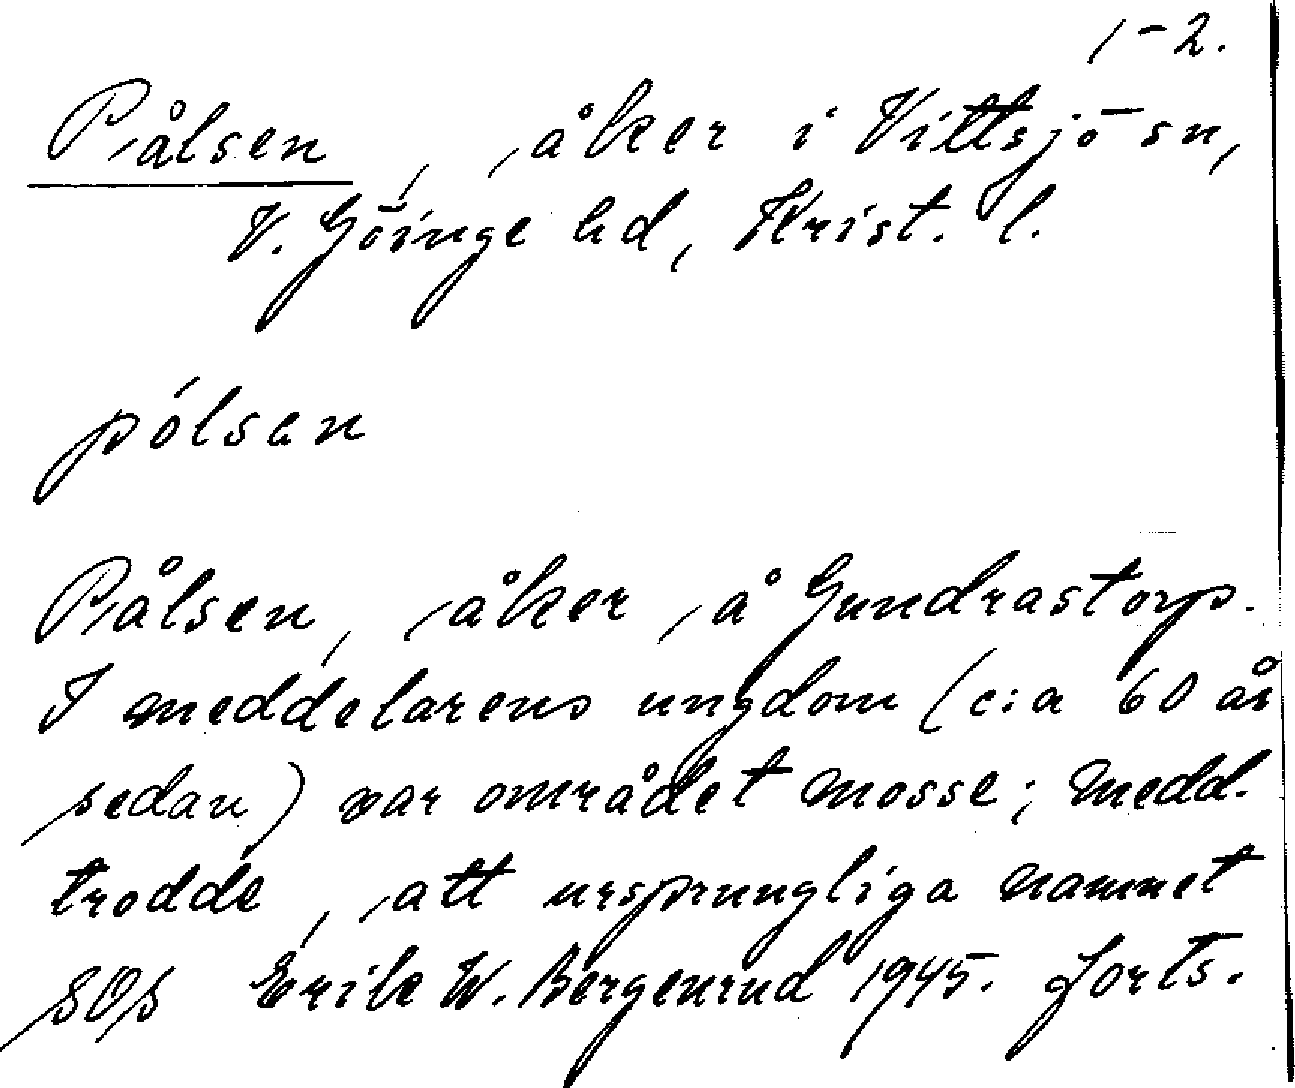 1-2.
Pålsen, åker i Vittsjö sn,
V. Göinge hd, Krist. l.
pólsen
Pålsen, åker å Gundrastorp.
I meddelarens ungdom (c:a 60 år
sedan) var området mosse; medd.
trodde, att ursprungliga namnet
SOS Erik W. Bergenrud 1945. forts.